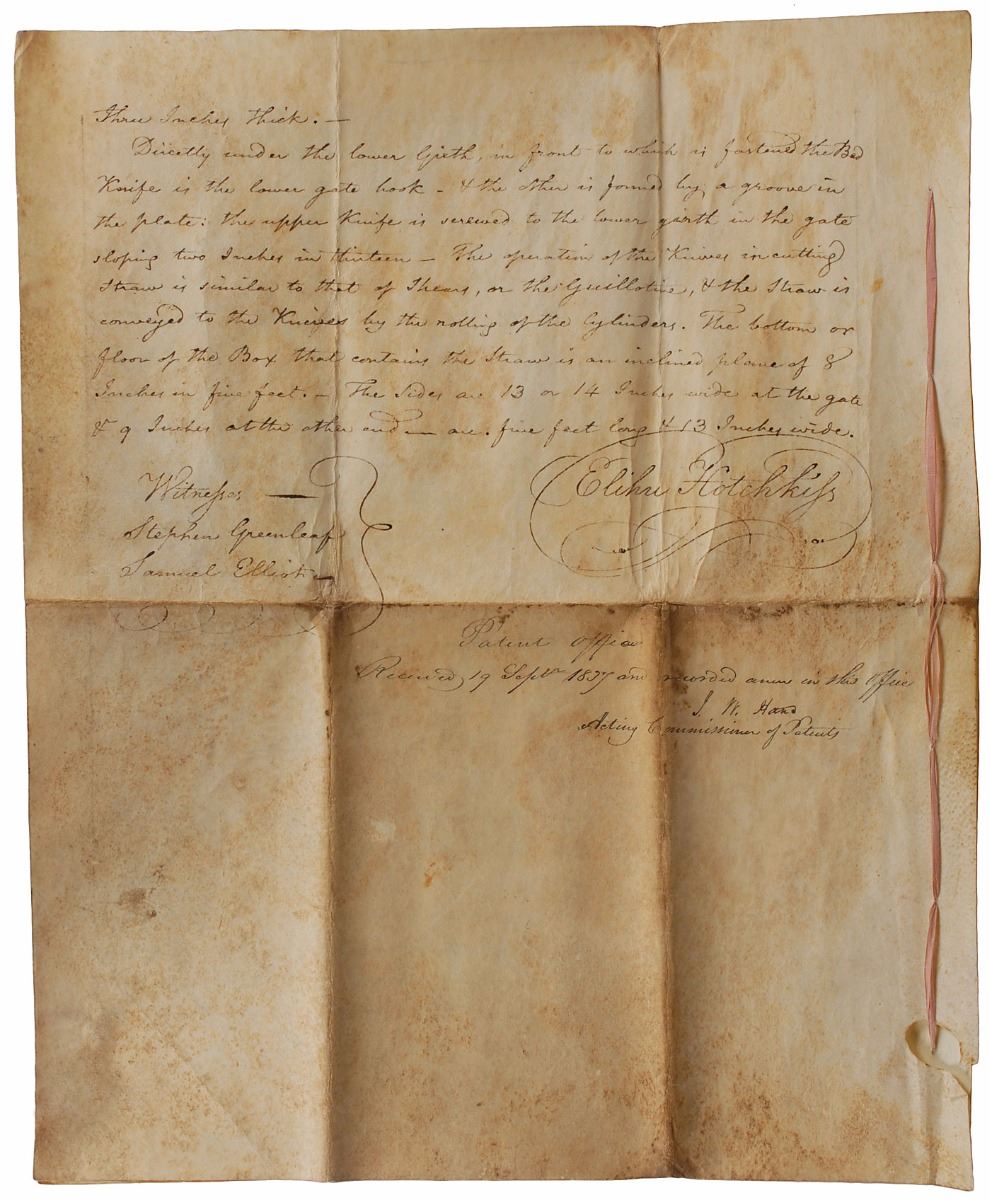 three Inches thick. —
Directly under the lower Girth, in front to which is fastened the Bed
Knife is the lower gate hook - & the other is formed by a groove in
the plate: the upper Knife is screwed to the lower garth in the gate
sloping two Inches in thirteen — The operation of the Knives in cutting
Straw is similar to that of Shears, or the Guillotine, & the Straw is
conveyed to the Knives by the rolling of the Cylinders. The bottom or
floor of the Box that contains the Straw is an inclined plane of 8
Inches in five feet. — The Sides are 13 or 14 Inches wide at the gate
& 9 Inches at the other end — are five feet long & 13 Inches wide.
Witnesses — Elihu Hotchkiss
Stephen Greenleaf
Samuel Elliot
Patent Office
Received 19 Septr 1837 and recorded anew in this Office
J. W. Hand
Acting Commissioner of Patents